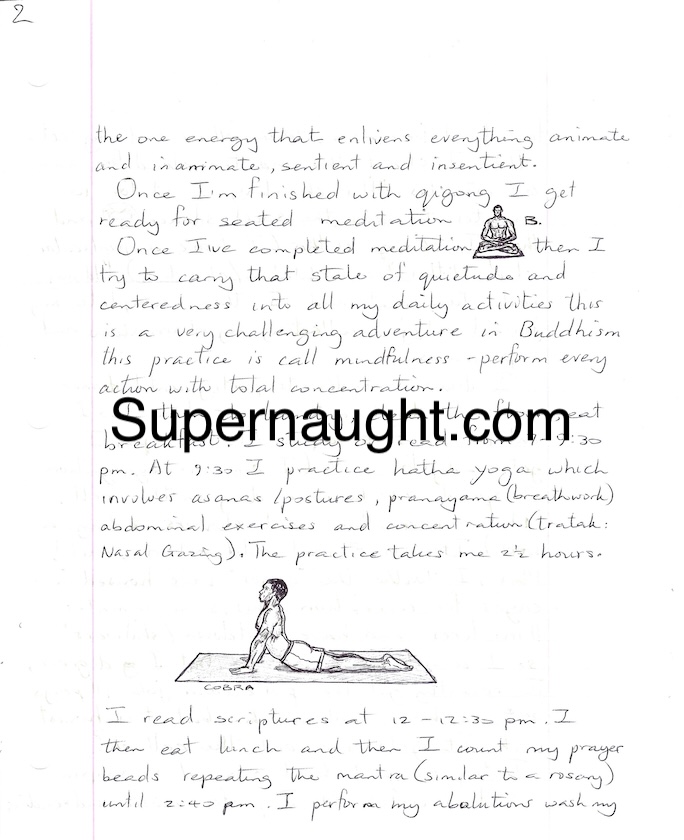 2
the one energy that enlivens everything animate
and inanimate, sentient and insentient.
Once I'm finished with qigong I get
ready for seated meditation B.
Once I've completed meditation, then I
try to carry that state of quietude and
centeredness into all my daily activities this
is a very challenging adventure in Buddhism
this practice is call mindfulness - perform every
action with total concentration.
eat
Supernaught.com
breakfast. I study read from 9:30
pm. At 9:30 I practice hatha yoga which
involves asanas/postures, pranayama (breathwork)
abdominal exercises and concentration (tratak:
Nasal Gazing). The practice takes me 2½ hours.
COBRA
I read scriptures at 12 - 12:30 pm. I
then eat lunch and then I count my prayer
beads repeating the mantra (similar to a rosary)
until 2:40 pm. I perform my abolutions wash my